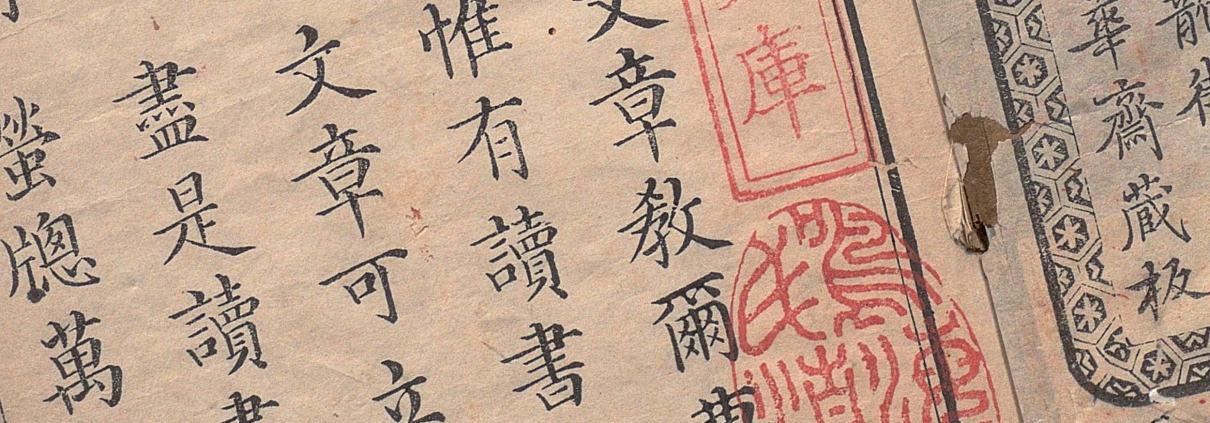 龍街
華齋蔵板
庫
文章教爾曹
惟有讀書
文章可立
盡是讀書
螢牕萬